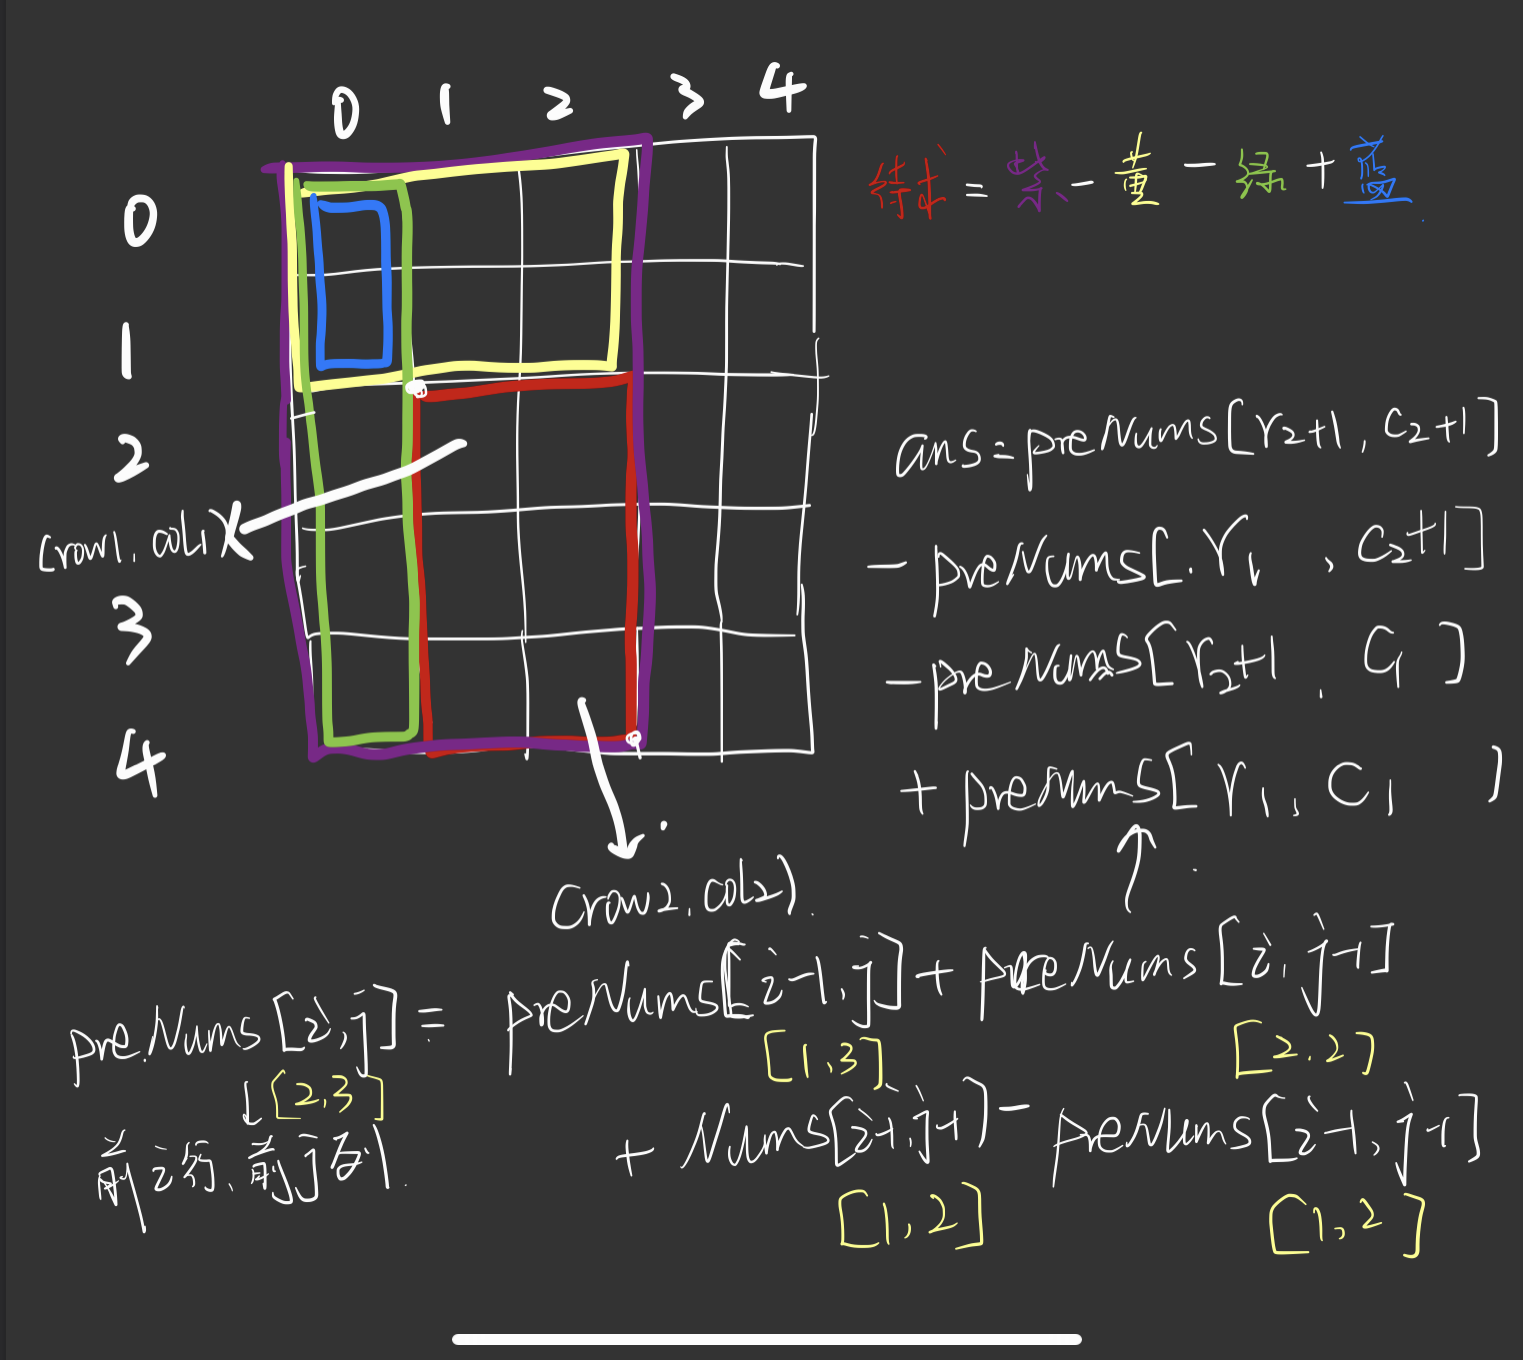 0 1 2 3 4
待求 = 紫 - 黄 - 绿 + 蓝
0
1
2
(row1, col1)
3
4
(row2, col2)
ans = preNums[r2+1, c2+1]
- preNums[r1, c2+1]
- preNums[r2+1, c1]
+ preNums[r1, c1]
preNums[i,j] = preNums[i-1,j] + preNums[i,j-1]
[2,3] [1,3] [2,2]
+ Nums[i-1,j-1] - preNums[i-1,j-1]
[1,2] [1,2]
前i行、前j列